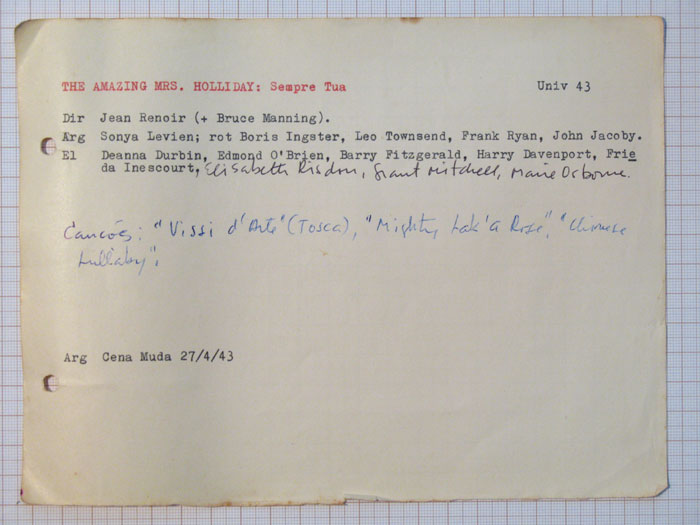 THE AMAZING MRS. HOLLIDAY: Sempre Tua Univ 43
Dir Jean Renoir (+ Bruce Manning).
Arg Sonya Levien; rot Boris Ingster, Leo Townsend, Frank Ryan, John Jacoby.
El Deanna Durbin, Edmond O'Brien, Barry Fitzgerald, Harry Davenport, Frie
da Inescourt, Elisabeth Risdon, Grant Mitchell, Marie Osborne.
Canções: "Vissi d'Arte" (Tosca), "Mighty Lak' a Rose", "Chinese
Lullaby".
Arg Cena Muda 27/4/43